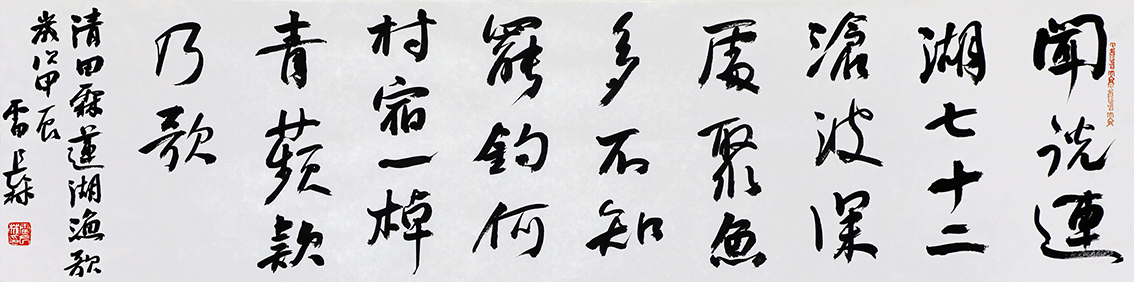 聞說連
湖七十二
滄波深
處聚魚
多不知
罷釣何
村宿一棹
青蘋欵
乃歌
清田霡蓮湖漁歌
歲次甲辰
雷長